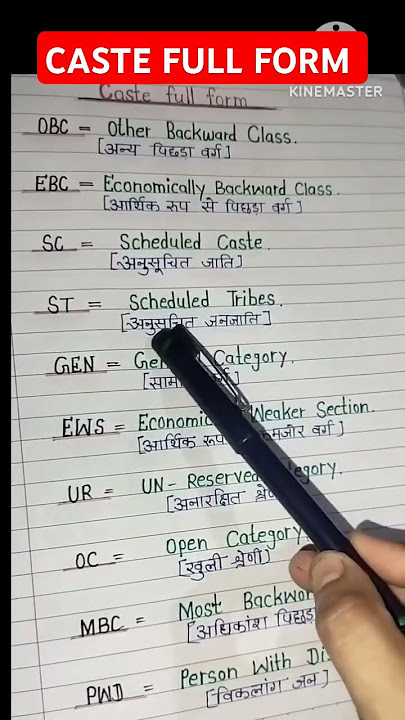 CASTE FULL FORM
KINEMASTER
Caste full form
OBC = Other Backward Class.
[अन्य पिछड़ा वर्ग]
EBC = Economically Backward Class.
[आर्थिक रूप से पिछड़ा वर्ग]
SC = Scheduled Caste.
[अनुसूचित जाति]
ST = Scheduled Tribes.
[अनुसूचित जनजाति]
GEN = Category.
EWS = Weaker Section.
[आर्थिक रूप वर्ग]
UR = UN-Reserved
[अनारक्षित
OC = Open Category
[खुली श्रेणी]
MBC = Most
[अधिकांश पिछड़ा
PWD = Person With
[विकलांग जन]